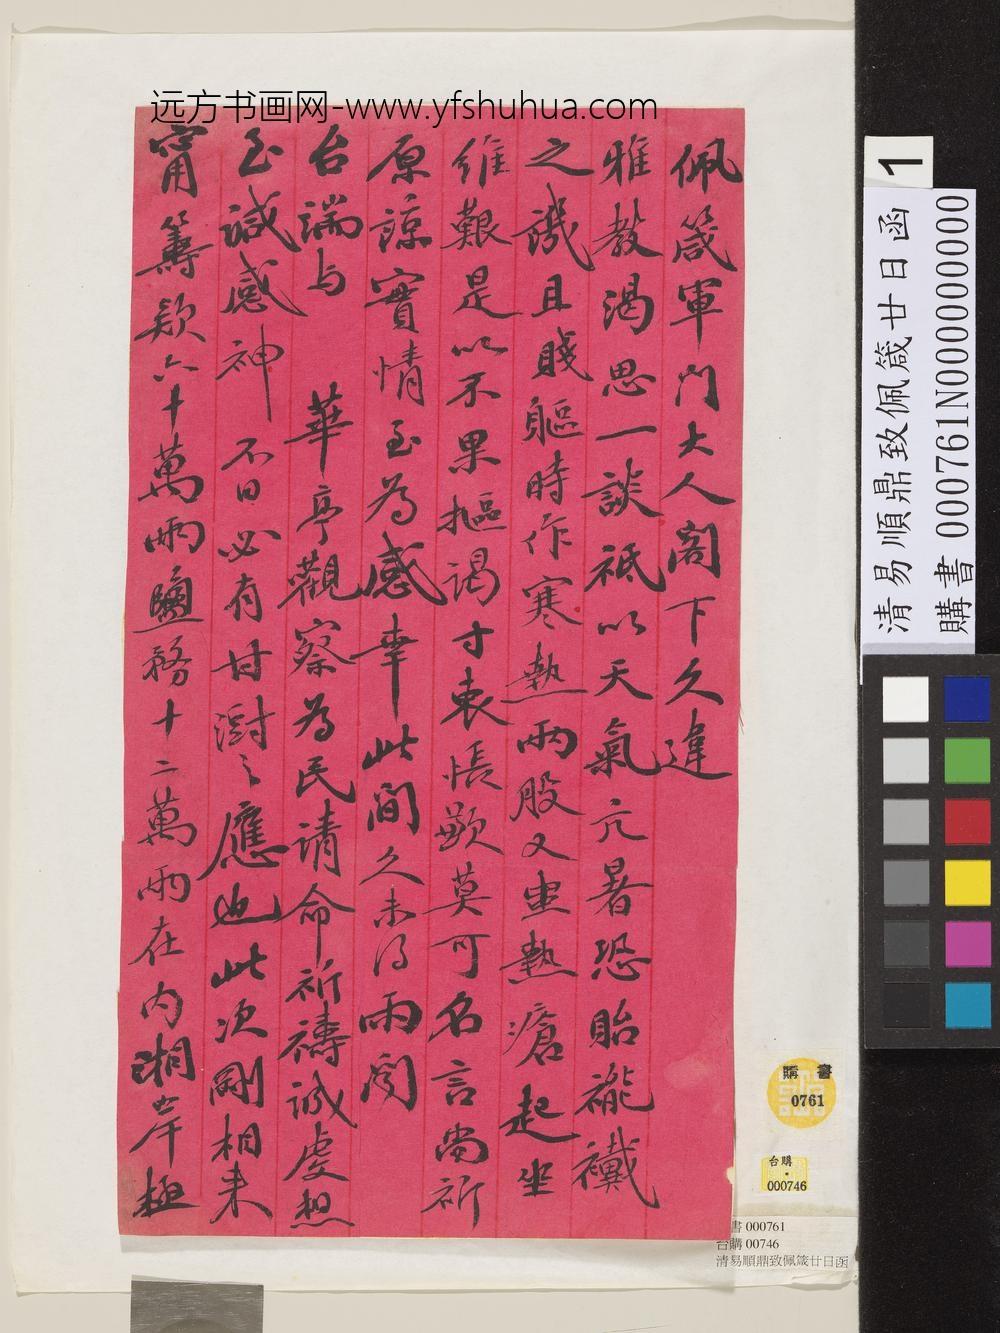 远方书画网-www.yfshuhua.com
佩箴軍門大人閣下久違
雅教渴思一談祇以天氣亢暑恐貽褦襶
之譏且賤軀時作寒熱兩股又患熱瘡起坐
維艱是以不果摳謁寸衷悵歉莫可名言尚祈
原諒實情至為感幸此間久未得雨聞
台端与 華亭觀察為民請命祈禱誠虔想
至諴感神不日必有甘澍之應也此次剛相来
甯籌款六十萬兩鹽務十二萬兩在内湘岸極
1
清易順鼎致佩箴廿日函
購書 000761N000000000
購書
0761
台購
000746
書 000761
台購 00746
清易順鼎致佩箴廿日函